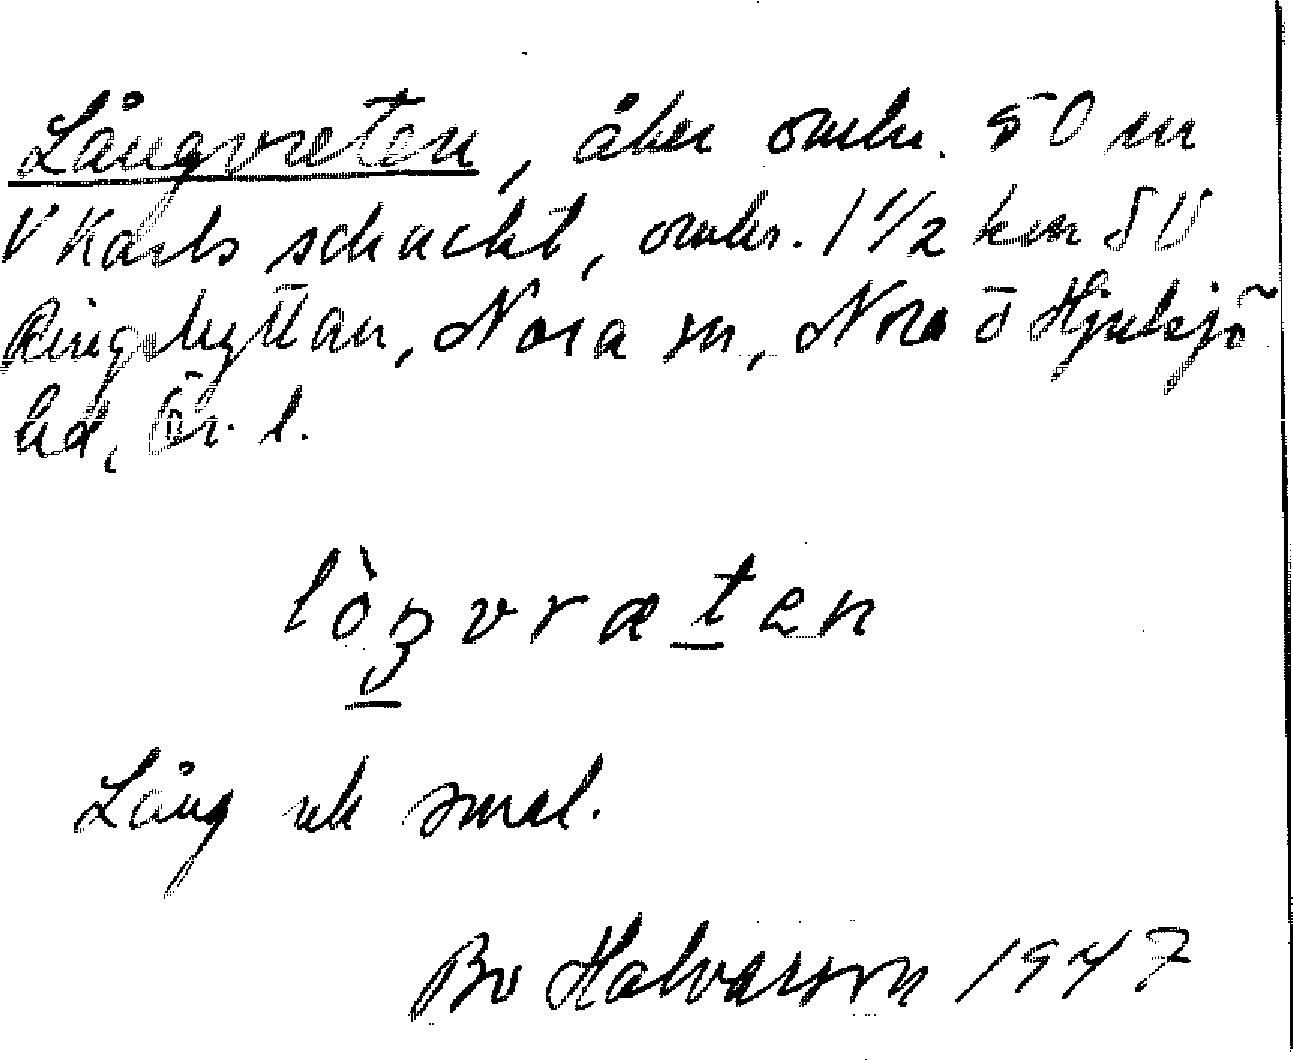 Långvreten, åker omkr. 50 m
V Karls schackt, omkr. 1 1/2 km SV
Ringshyttan, Nora sn, Nora o Hjulsjö
hd, Ör. l.
lòŋvrætən
Lång och smal.
Bo Halvarson 1947